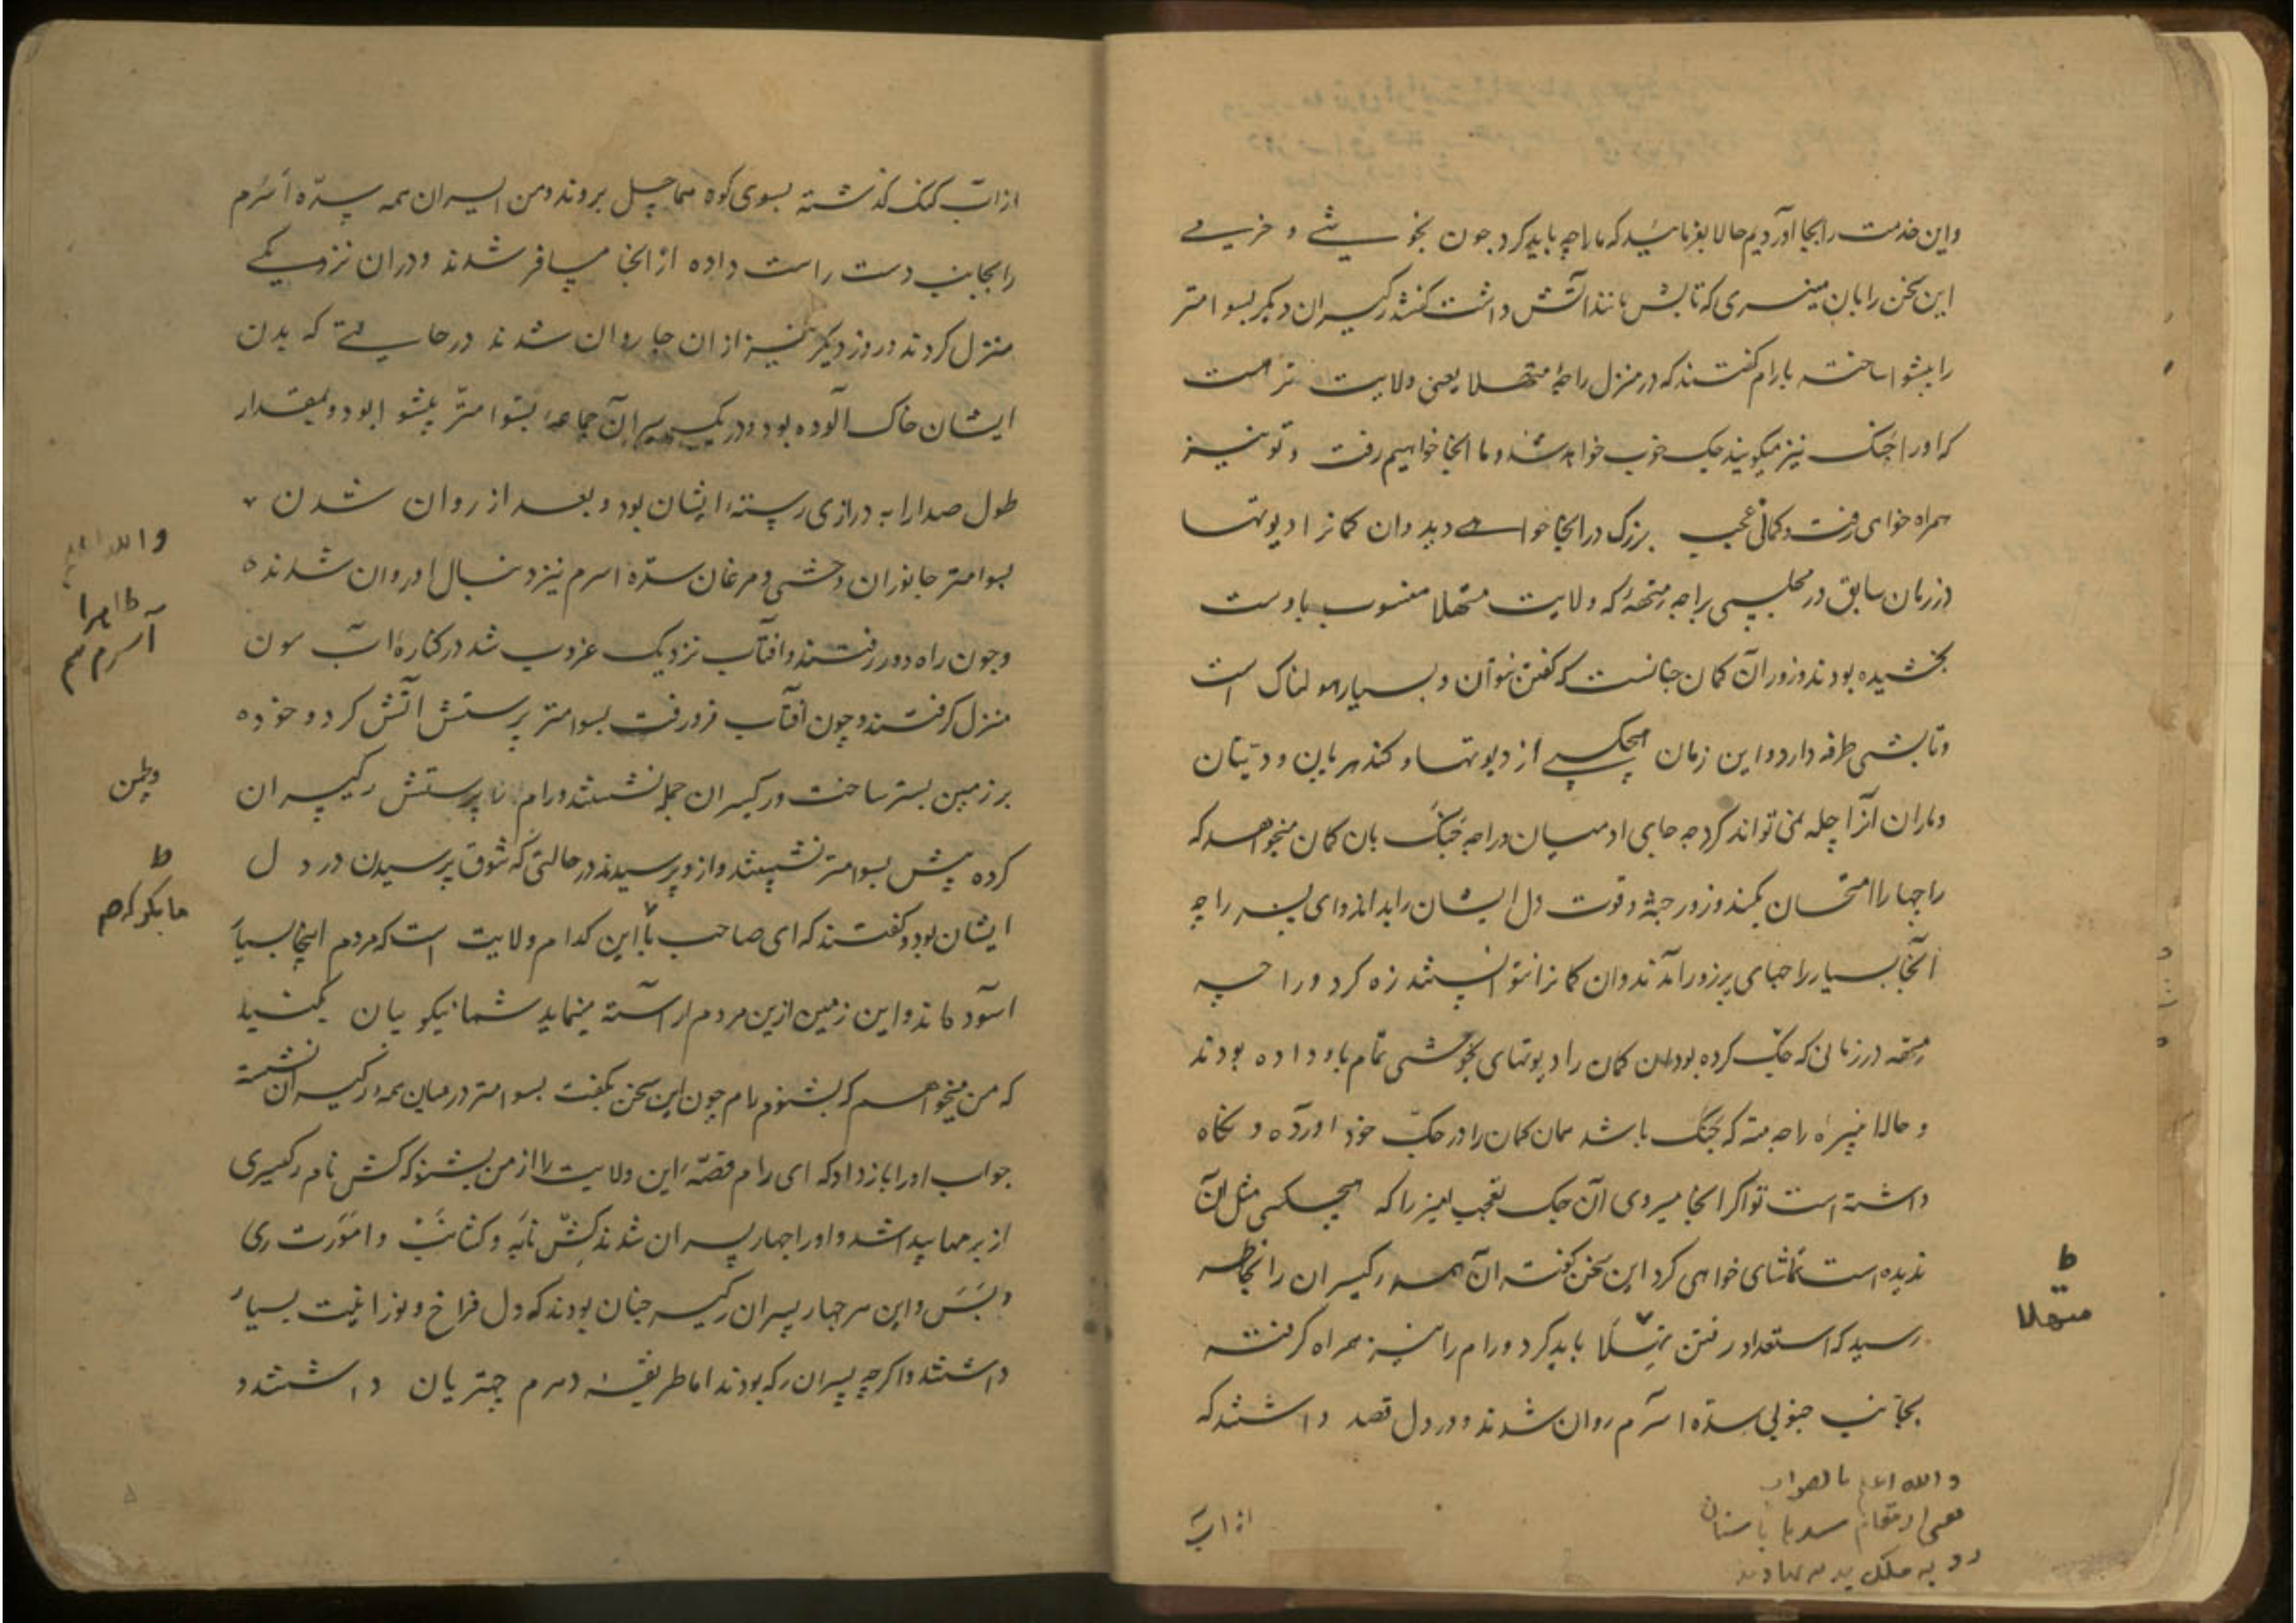 واین خدمت را بجا آوردیم حالا بفرمائید که ما را چه باید کرد چون بخوشی و خرمی
این سخن را بان مینسری که تابش مانند آتش داشت گفتند رکیسران دیگر بسوامتر
را پیشوا ساخته با رام گفتند که در منزل راجهٔ متهلا یعنی ولایت ترهت
که اورا جنک نیز میگویند جک خوب خواهد شد و ما انجا خواهیم رفت و تو نیز
همراه خواهی رفت و کمانی عجیب بزرک در انجا خواهی دید و ان کمانرا دیوتها
در زمان سابق در مجلسی براجه متهه که ولایت متهلا منسوب باوست
بخشیده بودند و زور آن کمان چنانست که گفتن نتوان و بسیار هولناک است
و تابشی طرفه دارد و این زمان هیچکسی از دیوتها و کندهربان و دیتان
و ماران آنرا چله نمی تواند کرد چه جای ادمیان و راجه جنک بان کمان میخواهد که
راجها را امتحان بکند و زور جثه و قوت دل ایشان را بداند و ای پسر راجه
آنجا بسیار راجهای پرزور آمدند و ان کمانرا نتوانستند زه کرد و راجه
متهه در زمانی که جک کرده بود ان کمان را دیوتهای بخوشی تمام باو داده بودند
و حالا نبیرهٔ راجه متهه که جنک باشد همان کمان را در جک خود آورده و نگاه
داشته است تو اگر انجا میروی آن جک تعجب امیز را که هیچکسی مثل آن
ندیده است تماشای خواهی کرد این سخن گفته ان همه رکیسران را بخاطر
رسید که استعداد رفتن متهلا باید کرد و رام را نیز همراه گرفته
بجانب جنوبی سده اسرم روان شدند و در دل قصد داشتند که
والله اعلم بالصواب
از آب
متهلا
از آب گنگ گذشته بسوی کوه هماچل بروند و من السران همه سده اسرم
را بجانب دست راست داده از انجا مسافر شدند و دران نزدیکی
منزل کردند و روز دیگر نیز از ان جا روان شدند در حالتی که بدن
ایشان خاک آلوده بود و در یک سر آن جماعه بسوامتر پیشوا بود و بمقدار
طول صدارابه درازی رستهٔ ایشان بود و بعد از روان شدن
بسوامتر جانوران وحشی و مرغان سده اسرم نیز دنبال او روان شدند
و چون راه دور رفتند و افتاب نزدیک غروب شد در کنارهٔ آب سون
منزل گرفتند و چون آفتاب فرو رفت بسوامتر پرستش آتش کرد و خود
بر زمین بستر ساخت و رکیسران جمله نشستند و رام پرستش رکیسران
کرده پیش بسوامتر نشستند و ازو پرسیدند در حالتی که شوق پرسیدن در دل
ایشان بود و گفتند که ای صاحب ما این کدام ولایت است که مردم اینجا بسیار
آسوده اند و این زمین ازین مردم آراسته مینماید شما نیکو بیان بکنید
که من میخواهم که بشنوم رام چون این سخن بگفت بسوامتر در میان همه رکیسران نشسته
جواب او را باز داد که ای رام قصهٔ این ولایت را از من بشنو که کش نام رکیسری
از برمها پیدا شد و او را چهار پسران شدند کش نابه و کشانب و امورت ری
و بس و این هر چهار پسران رکیسر چنان بودند که دل فراخ و نورانیت بسیار
داشتند و اگرچه پسران رکه بودند اما طریقهٔ دهرم چتریان داشتند و
ظاهرا
آسرم هم
وطن
ما بگو که هم